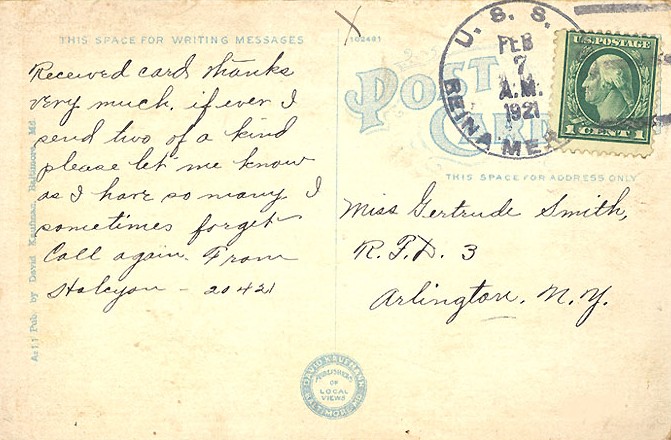 THIS SPACE FOR WRITING MESSAGES
Received card thanks
very much, if ever I
send two of a kind
please let me know
as I have so many I
sometimes forget
Call again. From
Halcyon - 20421
102481
POST
CARD
U. S. S.
FEB
7
A.M.
1921
REINA MER
U.S. POSTAGE
1 CENT 1
THIS SPACE FOR ADDRESS ONLY
Miss Gertrude Smith,
R. F. D. 3
Arlington, N. Y.
Pub. by David Kaufman, Baltimore, Md.
DAVID KAUFMAN
PUBLISHER
OF
LOCAL
VIEWS
BALTIMORE MD.